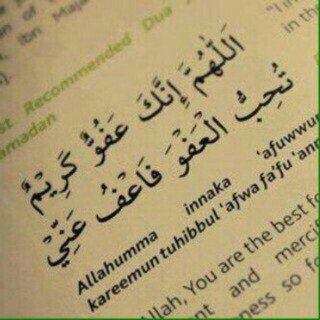 of
"I
). Ibn Maj
in th
st Recommended Dua
amadan
اَللّٰهُمَّ إِنَّكَ عَفُوٌّ كَرِيْمٌ
تُحِبُّ الْعَفْوَ فَاعْفُ عَنِّيْ
Allahumma innaka 'afuwwun
kareemun tuhibbul 'afwa fa'fu 'ann
Allah, You are the best fo
nt and mercif
ness so fo